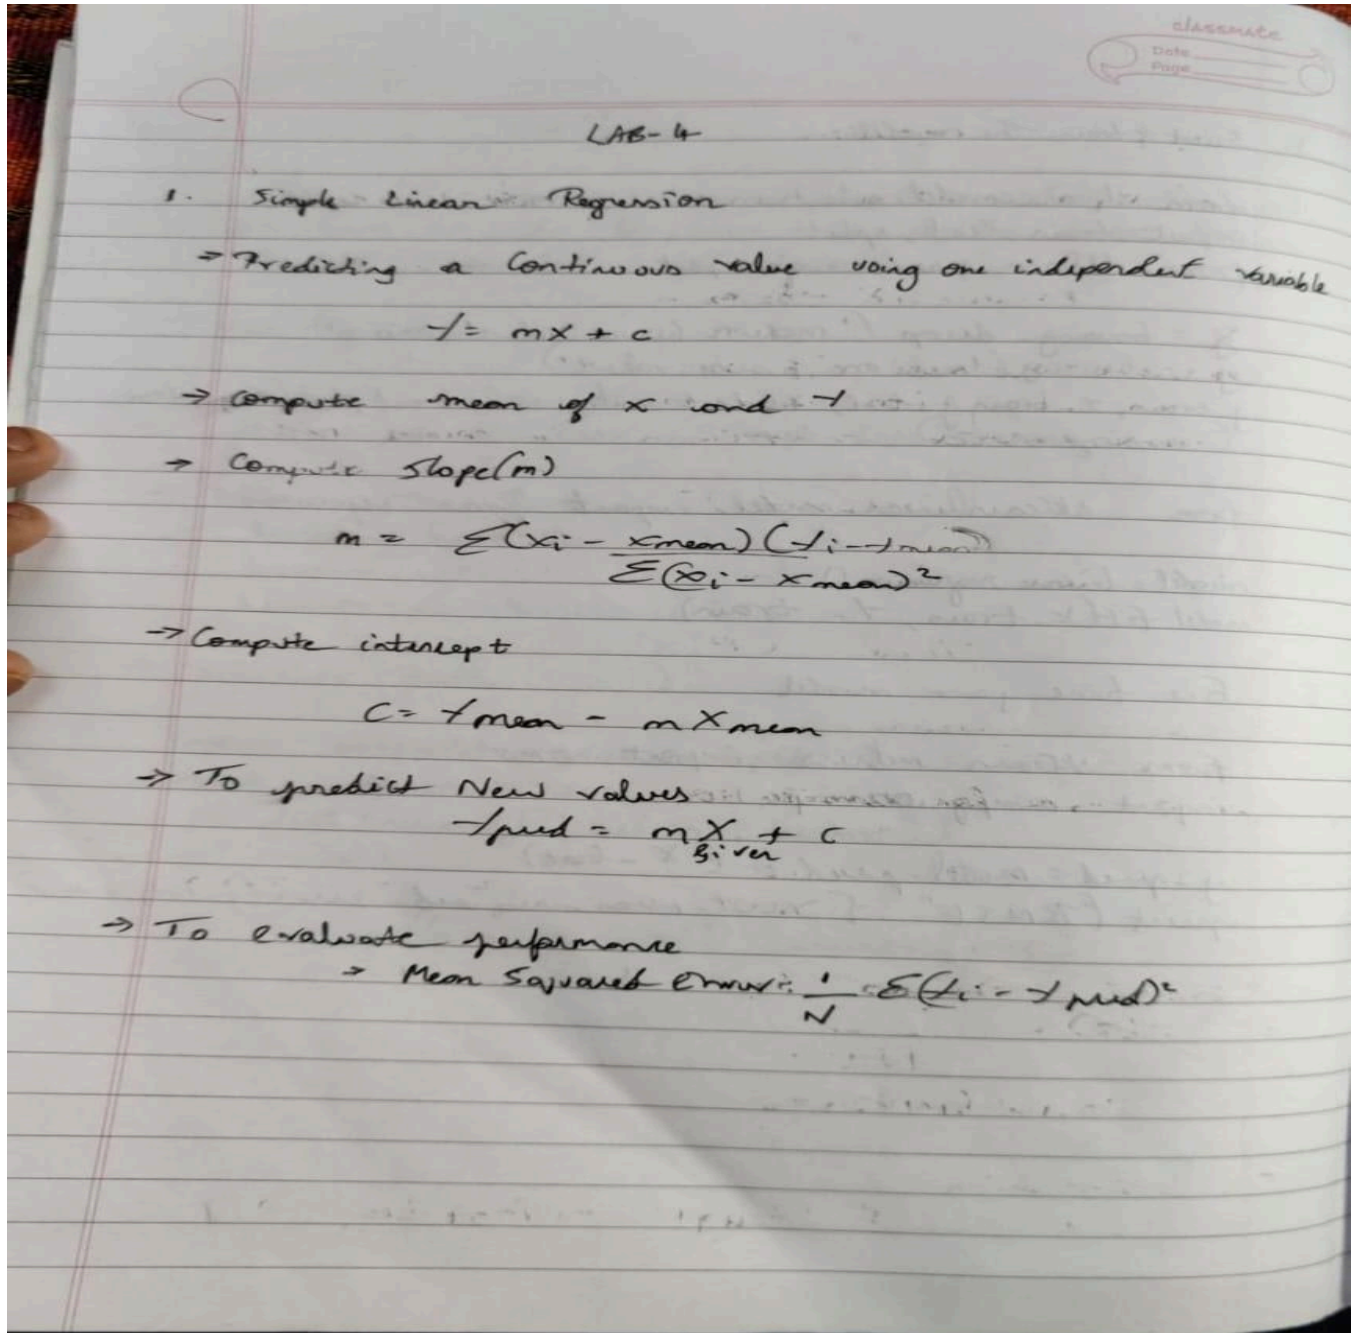 classmate
Date
Page
LAB-4
1. Simple Linear Regression
→ Predicting a Continuous value using one independent variable
Y = mX + c
→ Compute mean of X and Y
→ Compute slope(m)
m = Σ(Xi - Xmean)(Yi - Ymean)
Σ(Xi - Xmean)²
→ Compute intercept
C = Ymean - mXmean
→ To predict New values
Ypred = mX + C
given
→ To evaluate performance
→ Mean Squared Error: 1/N Σ(Yi - Ypred)²